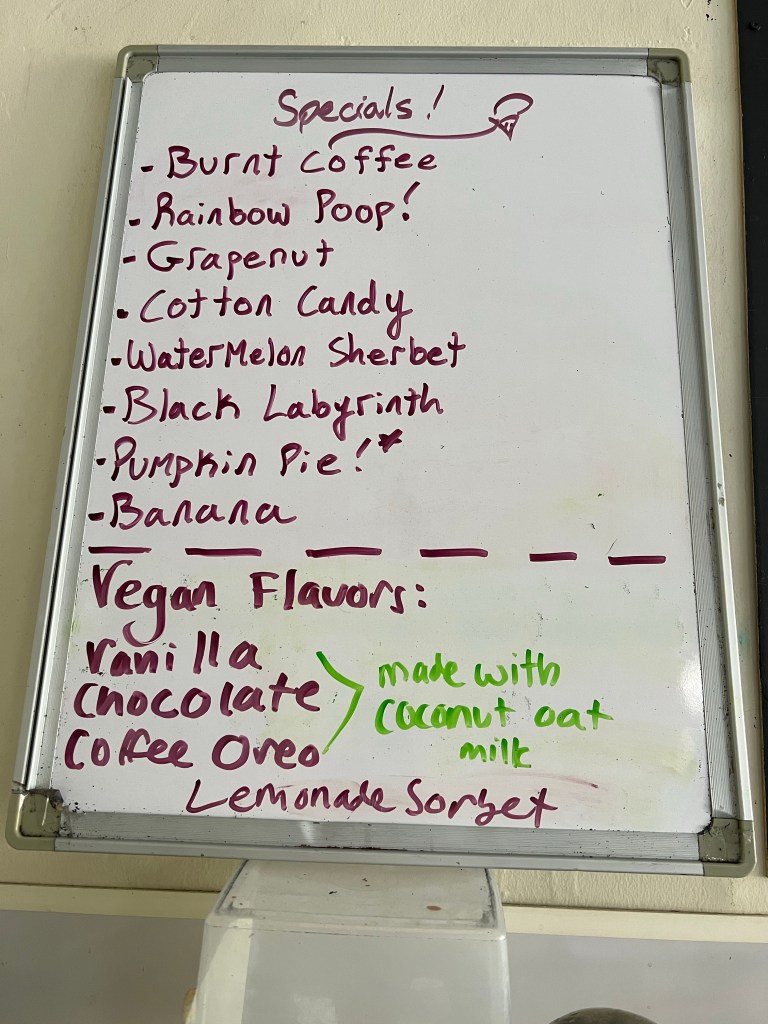 Specials!
- Burnt Coffee
- Rainbow Poop!
- Grapenut
- Cotton Candy
- WaterMelon Sherbet
- Black Labyrinth
- Pumpkin Pie!*
- Banana
Vegan Flavors:
Vanilla
Chocolate
Coffee Oreo
made with
coconut oat
milk
Lemonade Sorbet